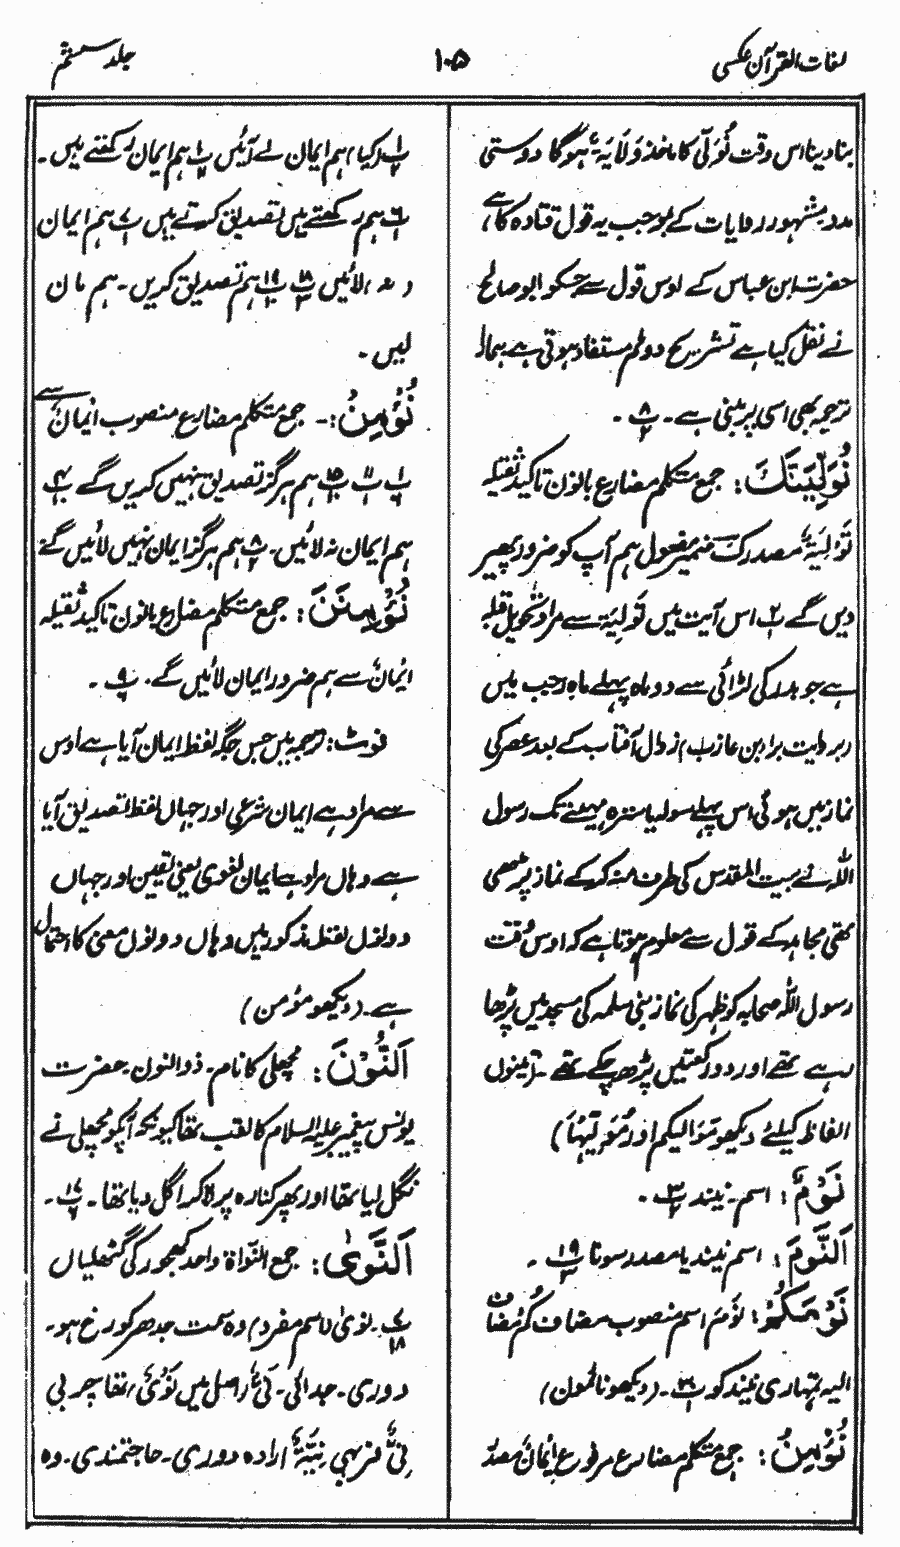 لغات القرآن عکسی
۱۰۵
جلد ششم
بنا دینا اس وقت نُوَلِّی کا ماخذ وَلَایَۃٌ ہو گا دوستی
مدد مشہور روایات کے بموجب یہ قول قتادہ کا ہے،
حضرت ابن عباس کے اوس قول سے جسکو ابو صالح
نے نقل کیا ہے تشریح دوم مستفاد ہوتی ہے ہمارا
ترجمہ بھی اسی پر مبنی ہے۔ پ ۸ ۲ ۔
نُوَلِّيَنَّكَ: جمع متکلم مضارع بانون تاکید ثقیلہ
تَوْلِیَۃٌ مصدر ک ضمیر مفعول ہم آپ کو ضرور پھیر
دیں گے پ ۲ ۱ اس آیت میں تَوْلِیَۃ سے مراد تحویل قبلہ
ہے جو بدر کی لڑائی سے دو ماہ پہلے ماہ رجب میں
(بروایت براء بن عازب) زوال آفتاب کے بعد عصر کی
نماز میں ہوئی اس پہلے سولہ یا سترہ مہینے تک رسول
اللہ نے بیت المقدس کی طرف منہ کر کے نماز پڑھی
تھی مجاہد کے قول سے معلوم ہوتا ہے کہ اوس وقت
رسول اللہ صحابہ کو ظہر کی نماز بنی سلمہ کی مسجد میں پڑھا
رہے تھے اور دو رکعتیں پڑھ چکے تھے۔ (تینوں
الفاظ کیلئے دیکھو تَوَالیکم اور مُوَلِّیہَا)
نَوْمٌ: اسم۔ نیند پ ۳ ۲ ۔
اَلنَّوْمَ: اسم نیند یا مصدر سونا پ ۱۹ ۳ ۔
نَوْمَكُمْ: نَوْمَ اسم منصوب مضاف کُمْ مضاف
الیہ تمہاری نیند کو پ ۳۰ ۱۔ (دیکھو نائمون)
نُؤْمِنُ: جمع متکلم مضارع مرفوع اِیْمَانٌ مصدر
پ ۱ ۲ (کیا) ہم ایمان لے آئیں پ ۱ ہم ایمان رکھتے ہیں۔
پ ۶ ۱ ہم رکھتے ہیں تصدیق کرتے ہیں پ ۷ ۱ ہم ایمان
(نہ) لائیں پ ۱۸ ۳ پ ۱۹ ۱۰ ہم تصدیق کریں۔ ہم مان
لیں۔
نُؤْمِنُ:۔ جمع متکلم مضارع منصوب اِیْمَانٌ سے
پ ۱ پ ۱۱ پ ۱۵ ہم ہرگز تصدیق نہیں کریں گے پ ۴
ہم ایمان نہ لائیں۔ پ ۸ ۲ ہم ہرگز ایمان نہیں لائیں گے
نُؤْمِنَنَّ: جمع متکلم مضارع بانون تاکید ثقیلہ
اِیْمَانٌ سے ہم ضرور ایمان لائیں گے۔ پ ۹ ۔
نوٹ: ترجمہ میں جس جگہ لفظ ایمان آیا ہے اوس
سے مراد ہے ایمان شرعی اور جہاں لفظ تصدیق آیا
ہے وہاں مراد ہے ایمان لغوی یعنی یقین اور جہاں
دونوں لفظ مذکور ہیں وہاں دونوں معنی کا احتمال
ہے۔ (دیکھو مؤمن)
اَلنُّوْنَ: مچھلی کا نام۔ ذوالنون۔ حضرت
یونس پیغمبر علیہ السلام کا لقب تھا کیونکہ آپکو مچھلی نے
نگل لیا تھا اور پھر کنارہ پر لا کر اگل دیا تھا۔ پ ۱۷ ۶ ۔
اَلنَّوٰی: جمع النَّوَاۃ واحد کھجور کی گٹھلیاں
پ ۷ ۱۸ ۔ نویٰ (اسم مفرد) وہ سمت جدھر کو رخ ہو۔
دوری۔ جدائی۔ نَیٌّ (اصل میں نَوْیٌ) تھا چربی
نِیٌّ فربہی نِیَّۃٌ ارادہ دوری۔ حاجتمندی۔ وہ